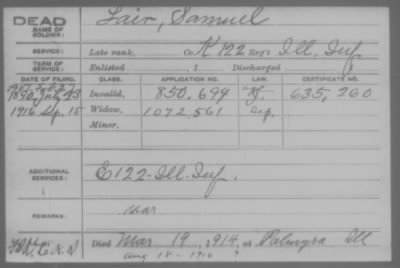 DEAD
NAME OF SOLDIER:
Lair, Samuel
SERVICE:
Late rank, Co. K 122 Reg't Ill. Inf.
TERM OF SERVICE:
Enlisted , 1 Discharged
DATE OF FILING. CLASS. APPLICATION NO. LAW. CERTIFICATE NO.
1890 July 23 Invalid, 850,694 635,260
1916 Sep. 15 Widow, 1072,561
Minor,
ADDITIONAL SERVICES:
E 122 - Ill. Inf.
REMARKS:
war
Died Mar 19, 1914, at Palmyra Ill
Aug 18 - 1916 ?